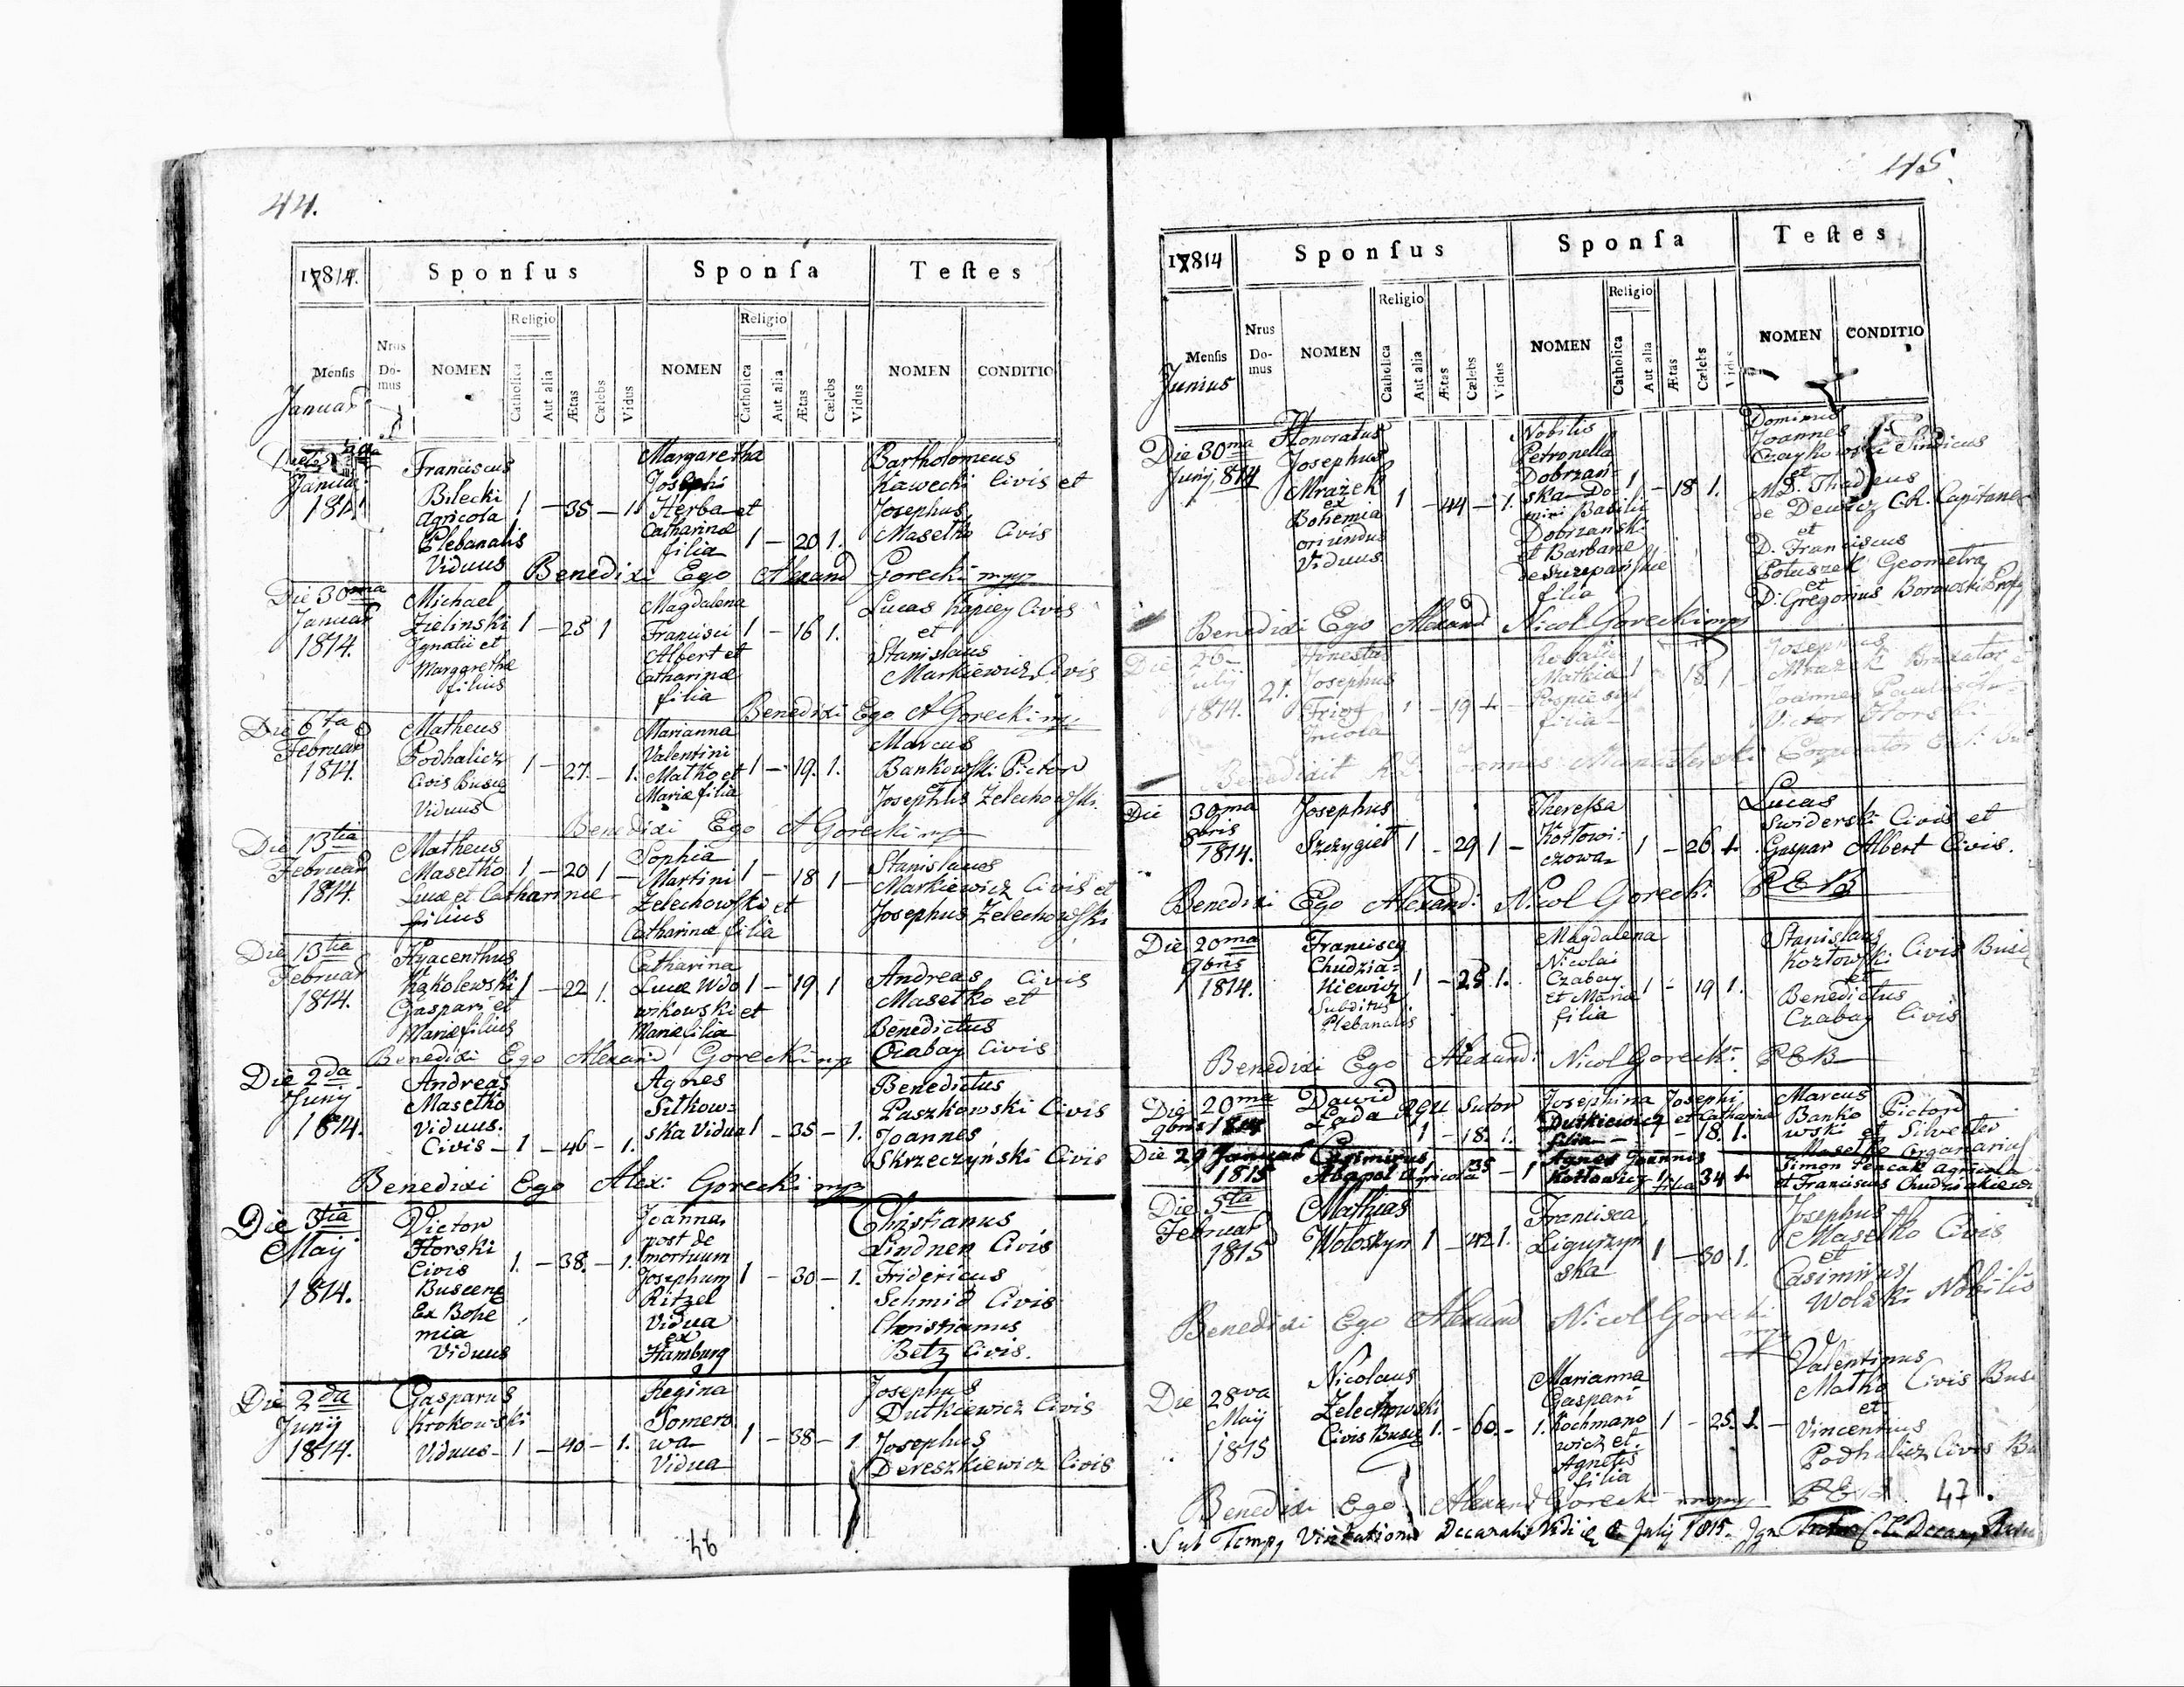 44.
17814. Sponsus Sponsa Testes
Mensis Nrus Domus NOMEN Religio Catholica Aut alia Ætas Cælebs Vidus NOMEN Religio Catholica Aut alia Ætas Cælebs Vidus NOMEN CONDITIO
Januar
Franciscus Margaretha Bartholomeus
Bilecki Josephi Kawecki Civis et
Agricola 1 – 35 – 1 Herba et Josephus
Plebanalis Catharinæ 1 – 20 1. Masetko Civis
Viduus filia
Benedixi Ego Alexand Gorecki mpp
Die 30ma Michael Magdalena Lucas Kapiey Civis
Januar Zielinski 1 – 25 1 Francisci 1 – 16 1. et
1814. Ignatii et Albert et Stanislaus
Margarethæ Catharinæ Markiewicz Civis
filius filia
Benedixi Ego A Gorecki mp.
Die 6ta Matheus Marianna Marcus
Februar Podhalicz 1 – 27. – 1. Valentini Bankowski Pictor
1814. Civis Buscg Matko et 1 – 19. 1. et
Viduus Mariæ filia Josephus Zelechowski.
Benedixi Ego A Gorecki mp
Die 13tia Matheus Sophia Stanislaus
Februar Masetko 1 – 20 1 – Martini 1 – 18 1 – Markiewicz Civis et
1814. Lucæ et Catharinæ Zelechowski et Josephus Zelechowski
filius Catharinæ filia
Die 13tia Hyacenthus Catharina Andreas Civis
Februar Kąkolewski 1 – 22 1. Lucæ Wdo 1 – 19 1 Masetko et
1814. Gaspari et wikowski et Benedictus
Mariæ filius Mariæ filia Czabay Civis
Benedixi Ego Alexand Gorecki mp
Die 2da Andreas Agnes Benedictus
Junij Masetko Sitkow= Paszkowski Civis
1814. Viduus. ska Vidua 1 – 35 – 1. Joannes
Civis – 1 – 46 – 1. Skrzeczyński Civis
Benedixi Ego Alex: Gorecki mp
Die 3tia Victor Joanna Christianus
Maij Horski post de Lindner Civis
Civis 1. – 38. – 1. mortuum Fridericus
1814. Buscens Josephum 1 – 30 – 1. Schmid Civis
Ex Bohe Ritzel Christianus
mia Vidua Betz Civis.
Viduus ex
Hamburg
Die 2da Gasparus Regina Josephus
Junij Krokowski Somero Dutkiewicz Civis
1814. Viduus – 1 – 40 – 1. wa 1 – 38 – 1 Josephus
Vidua Dereszkiewicz Civis
46
45
17814 Sponsus Sponsa Testes
Mensis Nrus Domus NOMEN Religio Catholica Aut alia Ætas Cælebs Vidus NOMEN Religio Catholica Aut alia Ætas Cælebs Vidus NOMEN CONDITIO
Junius
Die 30ma Honoratus Nobilis Dominus
Junij 814 Josephus Petronella Joannes
Mrazek Dobrzan= Czaykowski Sindicus
ex 1 – 44 – 1. ska Do: 1 – 18 1. et
Bohemia mini Basilii M.D. Thadeus
oriundus Dobrzanski de Dewicz C.R. Capitaneo
Viduus et Barbaræ et
de Szczepańskie D. Franciscus
filia Potuszek Geometra
et
D: Gregorius Borowski
Benedixi Ego Alexand Nicol Gorecki mp
Die 26 Josephus
Julij 21. Josephus Mathiæ 1 18 1 Mrazek Braxator
1814. 1 – 19 filia Joannes
Incola Victor Horski
Benedixit Joannes
Die 30ma Josephus Theressa Lucas
8bris Szczygieł 1 – 29 1 – Kozłowi: 1 – 26 1. Swiderski Civis et
1814. czowa Gaspar Albert Civis.
Benedixi Ego Alexand: Nicol Gorecki P E B
Die 20ma Franciscg Magdalena Stanislaus
9bris Chudzia= Nicolai Kozłowski Civis
1814. kiewicz 1 – 25 1. Czabay 1 – 19 1. et
Subditus et Mariæ Benedictus
Plebanalis filia Czabay Civis
Benedixi Ego Alexand: Nicol Gorecki P E B
Die 20ma Dawid Sutor Josephina Josephi Marcus
9bris 1814 Łada 1 – 18. 1. Dutkiewicz et Catharinæ Banko Pictor
filia – 1 – 18. 1. wski et Silvester
Masetko Organarius
Die 29 Januar Casimirus Agnes Joannis Simon Pencak Agricola
1815 Agricola 35 – 1 Kozłowicz filia 34 1. et Franciscus Chudziakiewicz
Die 5ta Mathias Francisca Josephus
Februar Wołoszyn 1 – 42 1. Liguzzyn 1 – 30 1. Masetko Civis
1815 ska et
Casimirus
Wolski Nobilis
Benedixi Ego Alexand Nicol Gorecki
Nicolaus Marianna Valentinus
Die 28va Zelechowski Gaspari Matko Civis
Maij Civis Buscg 1. – 60. – 1. Kochmano 1 – 25. 1. – et
1815 wicz et Vincentius
Agnetis Podhalicz Civis
filia
Benedixi Ego Alexand Gorecki P E B 47.
Sub Temp, Visitationis Decanalis Vidi Julij 1815.